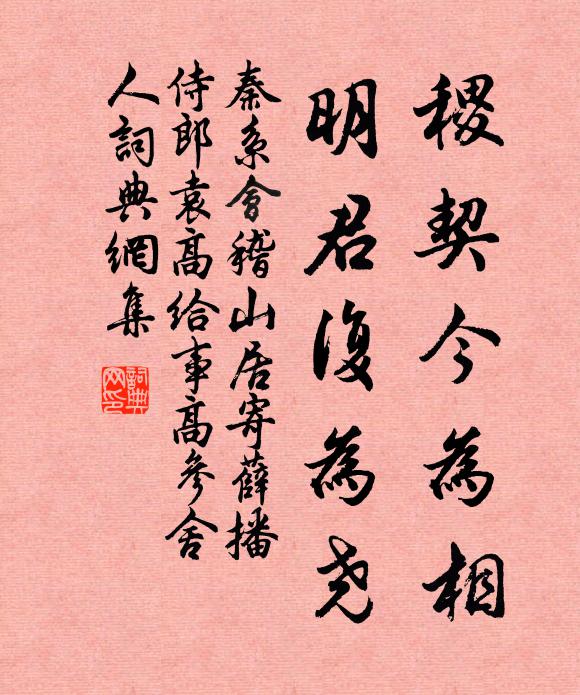 稷契今為相
明君復為堯
秦系會稽山居寄薛播
侍郎袁高給事高參舍
人詞典網集
詞典網印